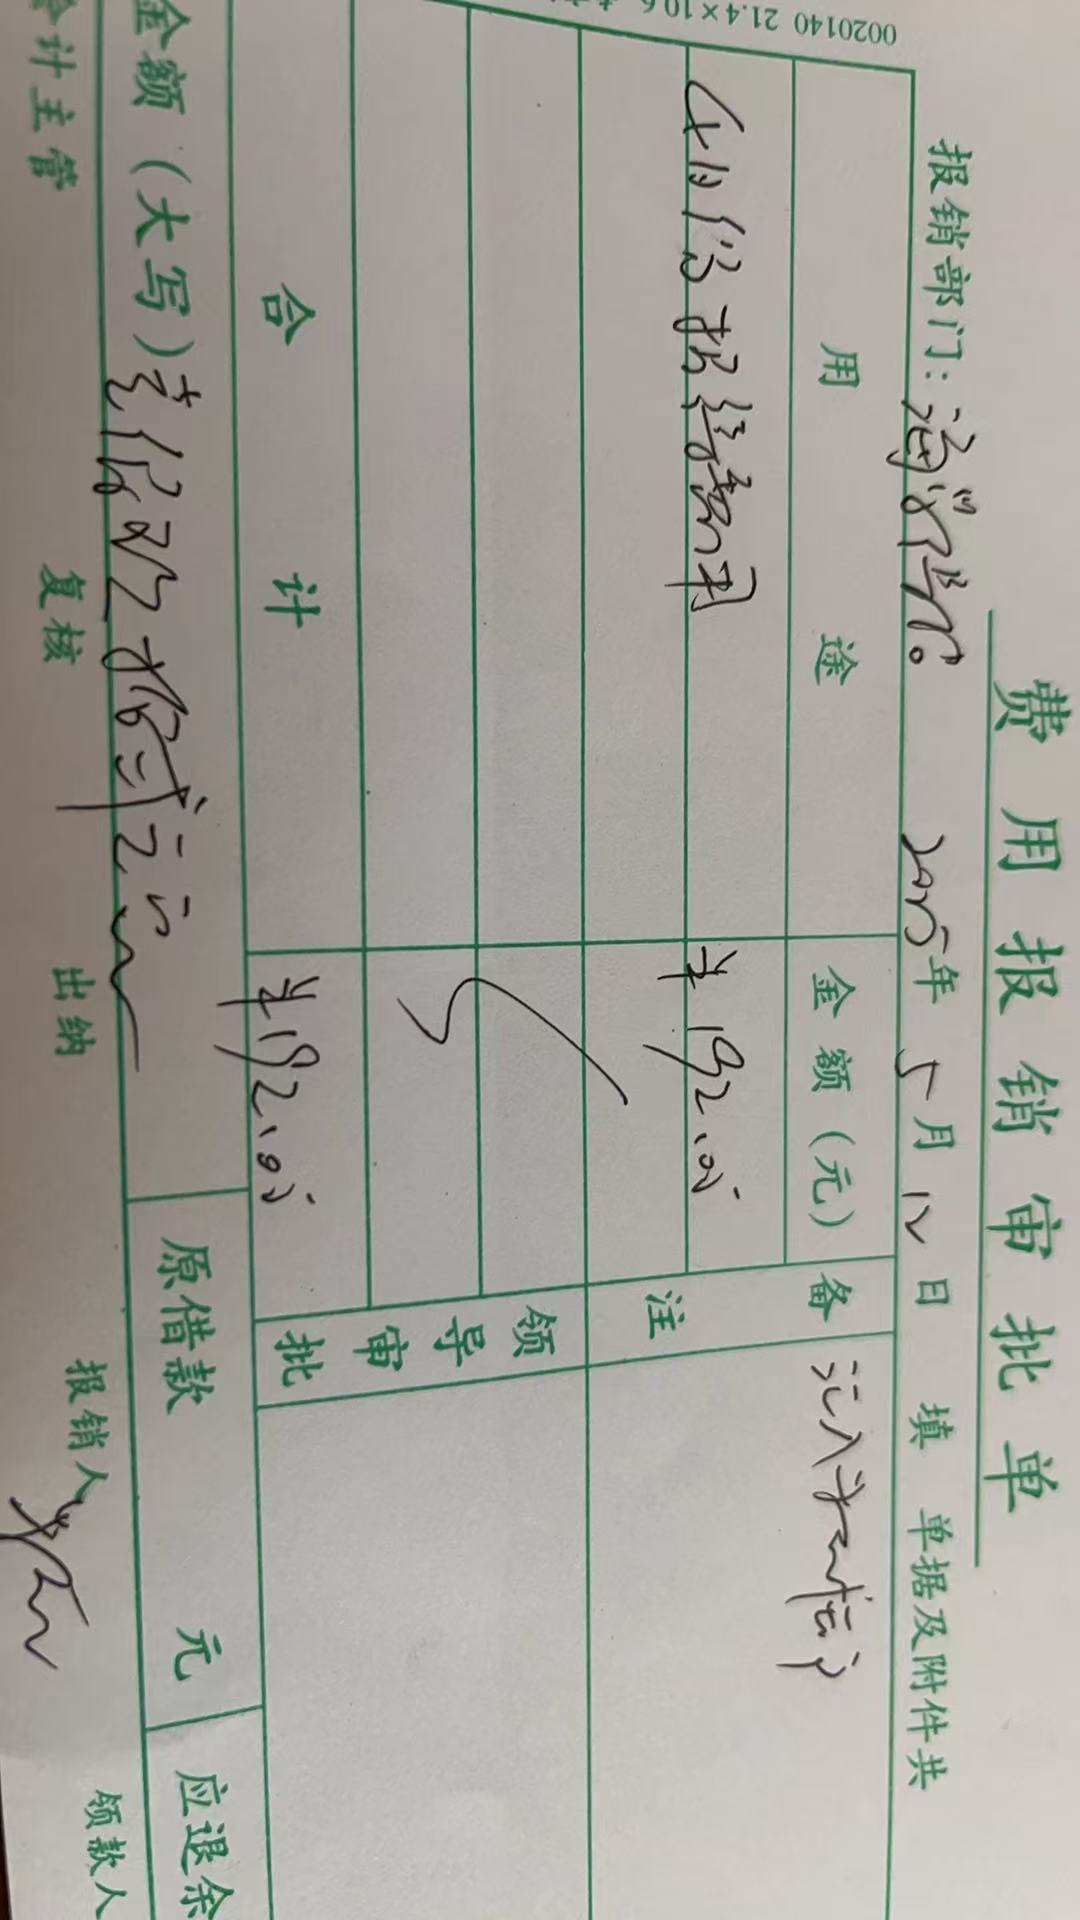 0020140 21.4×10.6
费用报销审批单
报销部门: 2025年5月12日填 单据及附件共
用途 金额(元) 备注
4月份报 ¥192.00
领导审批
合计 ¥192.00
金额(大写)壹佰玖拾贰元 原借款 元 应退余
会计主管 复核 出纳 报销人 领款人